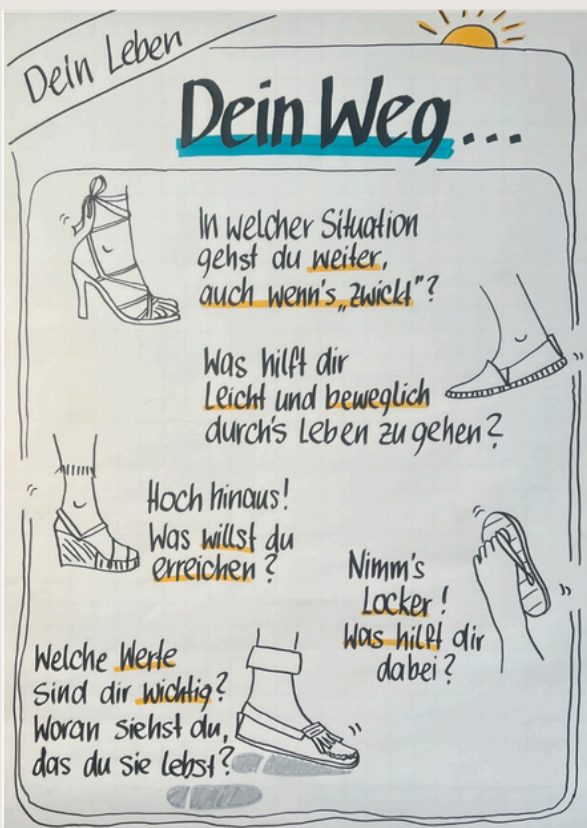 Dein Leben
Dein Weg...
In welcher Situation
gehst du weiter,
auch wenn's „zwickt"?
Was hilft dir
Leicht und beweglich
durch's Leben zu gehen?
Hoch hinaus!
Was willst du
erreichen?
Nimm's
Locker!
Was hilft dir
dabei?
Welche Werte
sind dir wichtig?
Woran siehst du,
das du sie lebst?